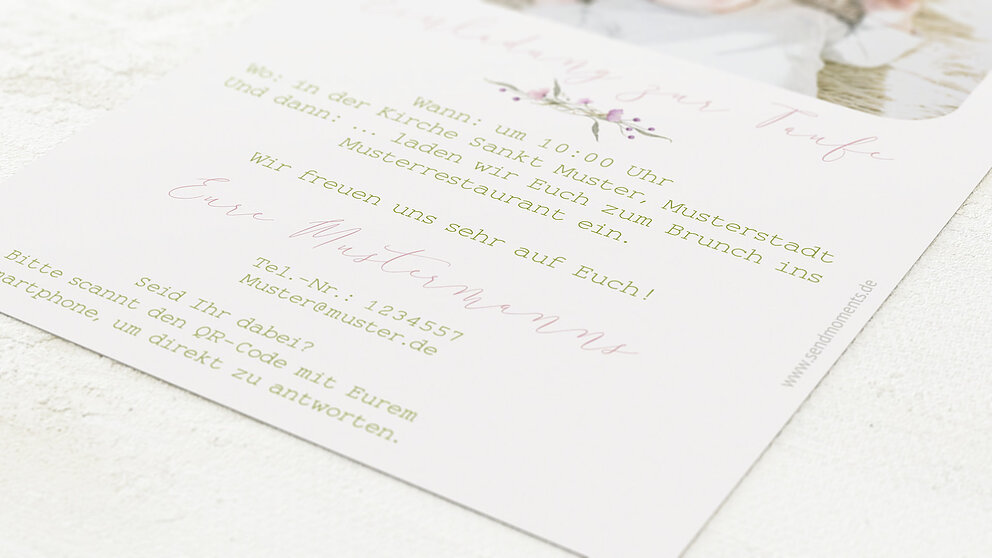 Einladung zur Taufe
Wann: um 10:00 Uhr
Wo: in der Kirche Sankt Muster, Musterstadt
Und dann: ... laden wir Euch zum Brunch ins
Musterrestaurant ein.
Wir freuen uns sehr auf Euch!
Eure Mustermanns
Tel.-Nr.: 1234557
Muster@muster.de
Seid Ihr dabei?
Bitte scannt den QR-Code mit Eurem
martphone, um direkt zu antworten.
www.sendmoments.de